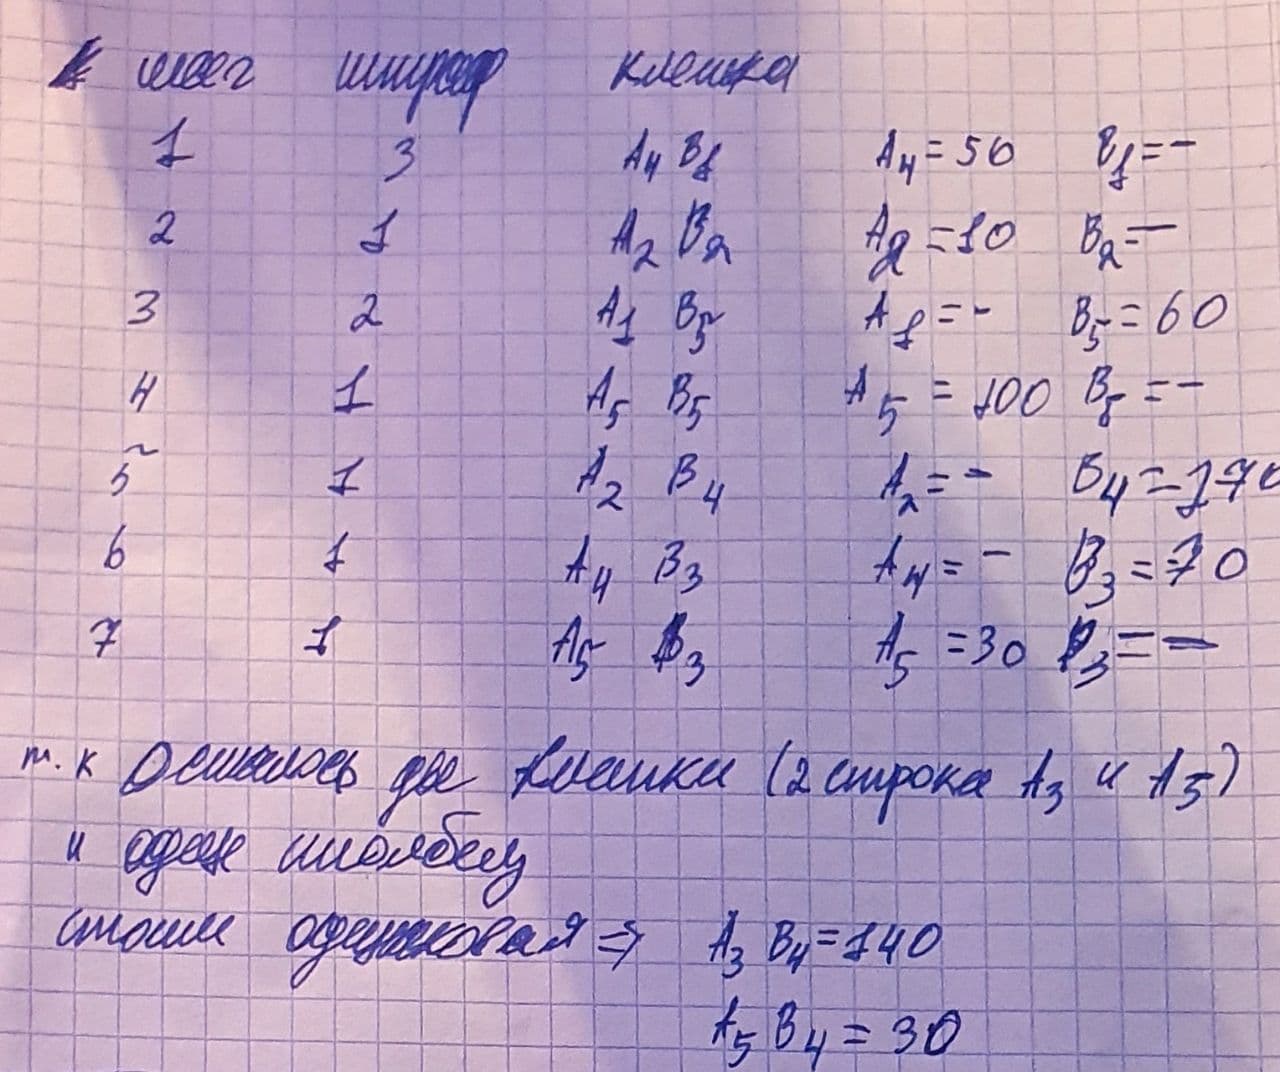 шаг штраф клетка
1 3 A4 B1 A4 = 50 B1 = -
2 1 A2 B2 A2 = 10 B2 = -
3 2 A1 B5 A1 = - B5 = 60
4 1 A5 B5 A5 = 100 B5 = -
5 1 A2 B4 A2 = - B4 = 170
6 1 A4 B3 A4 = - B3 = 70
7 1 A5 B3 A5 = 30 B3 = -
т. к Осталось две клетки (2 строка A3 и A5)
и один столбец
стоим одинаковая ⇒ A3 B4 = 140
A5 B4 = 30